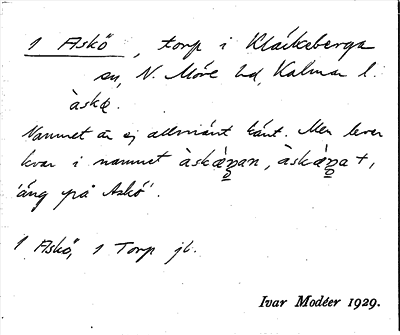 1 Askö, torp i Kläckeberga
sn, N. Möre hd, Kalmar l.
àskø̨.
Namnet är ej allmänt känt. Men lever
kvar i namnet
'äng på Askö'.
1 Askö, 1 Torp jb.
Ivar Modéer 1929.